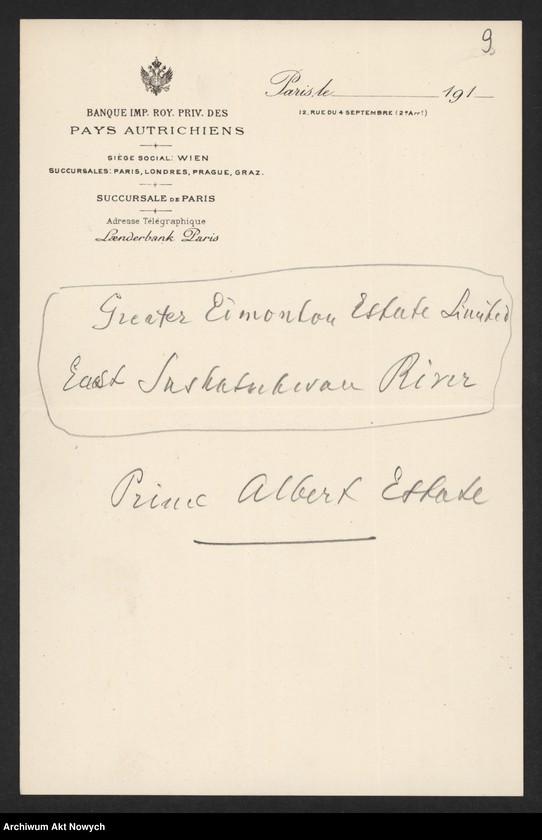 9
BANQUE IMP. ROY. PRIV. DES
PAYS AUTRICHIENS
SIÈGE SOCIAL: WIEN
SUCCURSALES: PARIS, LONDRES, PRAGUE, GRAZ.
SUCCURSALE DE PARIS
Adresse Télégraphique
Lænderbank Paris
Paris, le 191
12, RUE DU 4 SEPTEMBRE (2e Arrt)
Greater Edmonton Estate Limited
East Saskatchewan River
Prince Albert Estate
Archiwum Akt Nowych